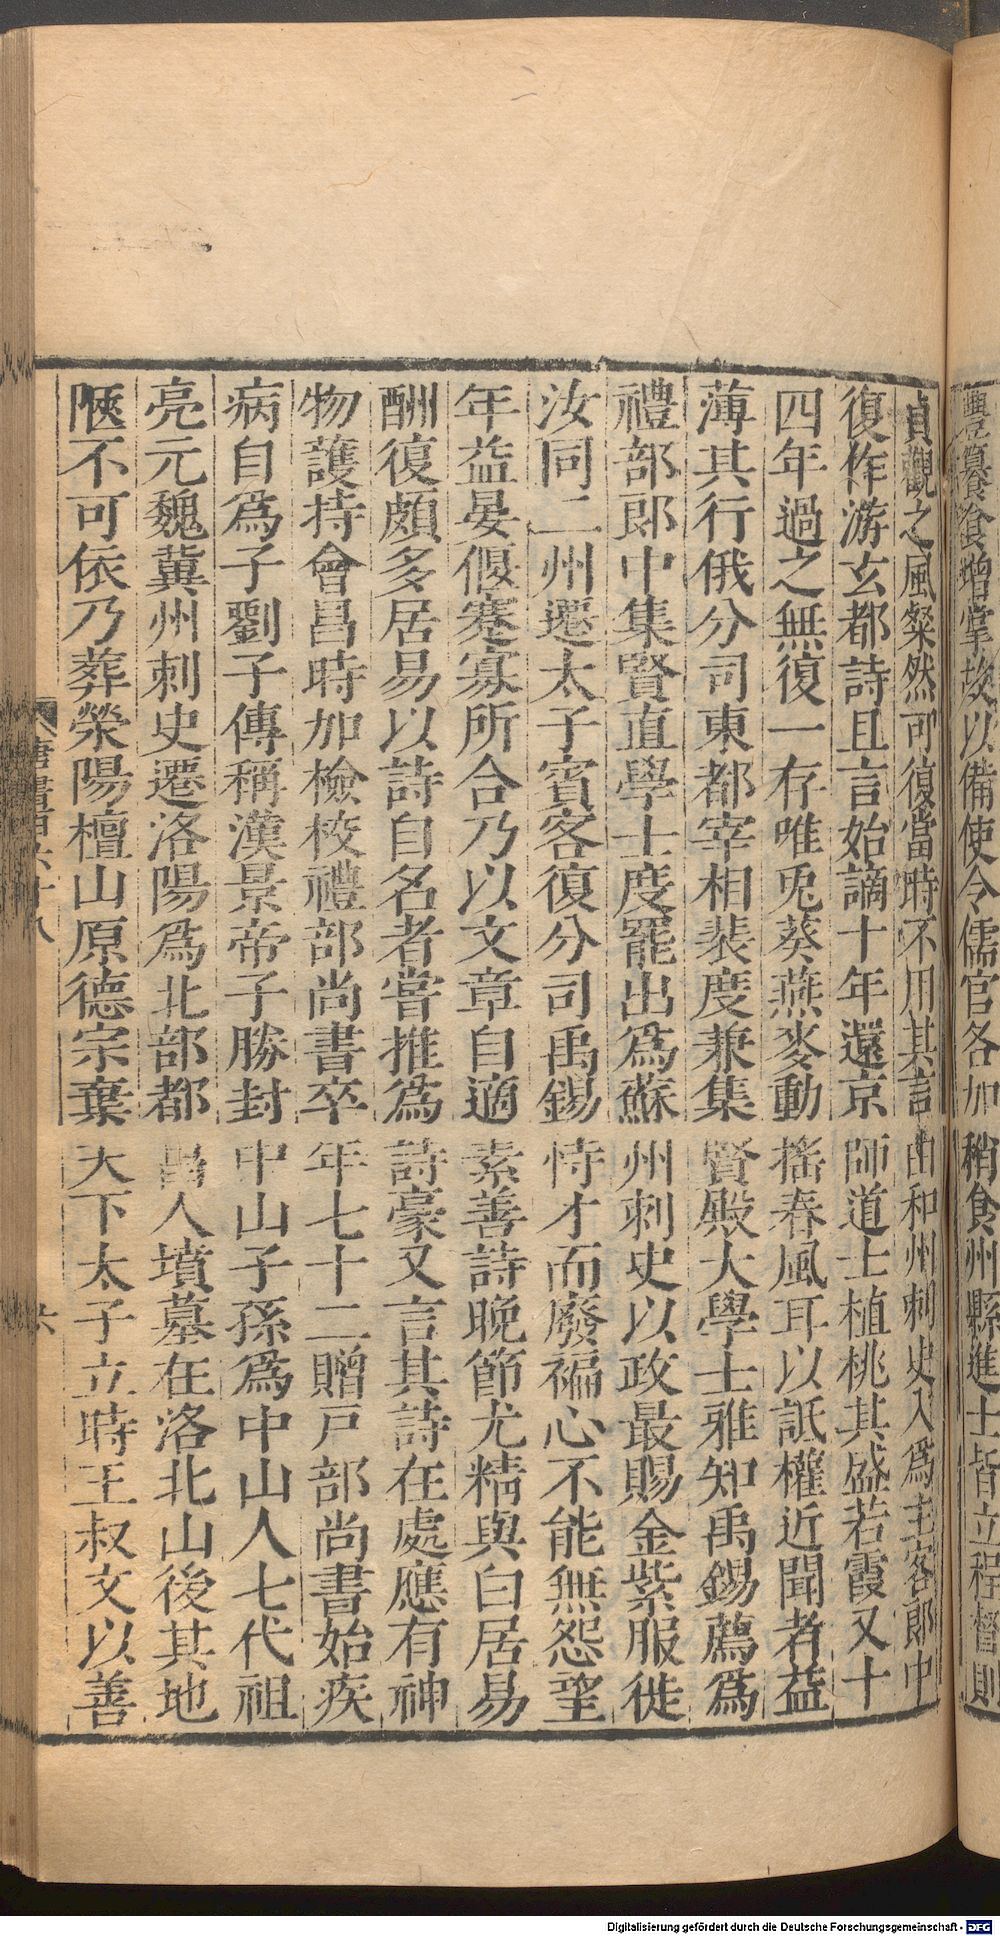 豐簋食增掌故以備使令儒官各加稍食州縣進士皆立程督則
貞觀之風粲然可復當時不用其言由和州刺史入爲主客郎中
復作游玄都詩且言始謫十年還京師道士植桃其盛若霞又十
四年過之無復一存唯兎葵燕麥動搖春風耳以詆權近聞者益
薄其行俄分司東都宰相裴度兼集賢殿大學士雅知禹錫薦爲
禮部郎中集賢直學士度罷出爲蘇州刺史以政最賜金紫服徙
汝同二州遷太子賓客復分司禹錫恃才而廢褊心不能無怨望
年益晏偃蹇寡所合乃以文章自適素善詩晚節尤精與白居易
酬復頗多居易以詩自名者嘗推爲詩豪又言其詩在處應有神
物護持會昌時加檢校禮部尚書卒年七十二贈戸部尚書始疾
病自爲子劉子傳稱漢景帝子勝封中山子孫爲中山人七代祖
亮元魏冀州刺史遷洛陽爲北部都昌人墳墓在洛北山後其地
陿不可依乃葬滎陽檀山原德宗棄天下太子立時王叔文以善
唐書百六十八
六
Digitalisierung gefördert durch die Deutsche Forschungsgemeinschaft - DFG